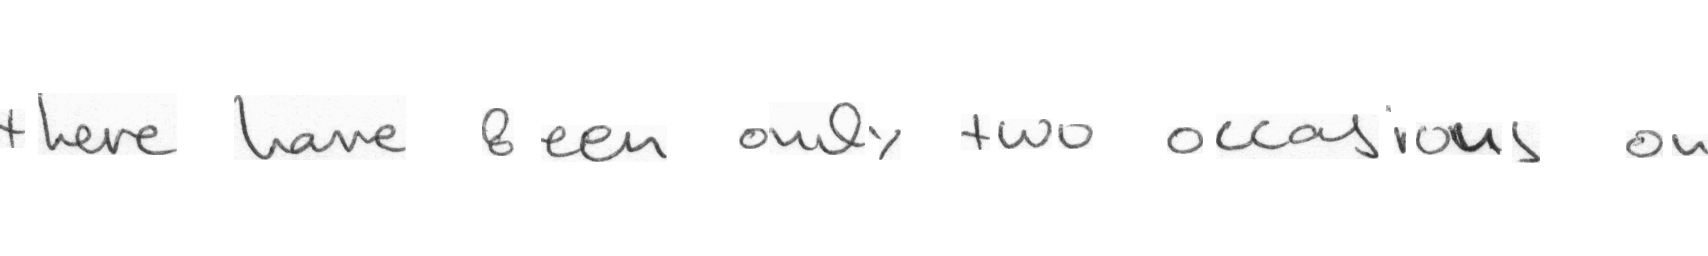 there have been only two occasions on